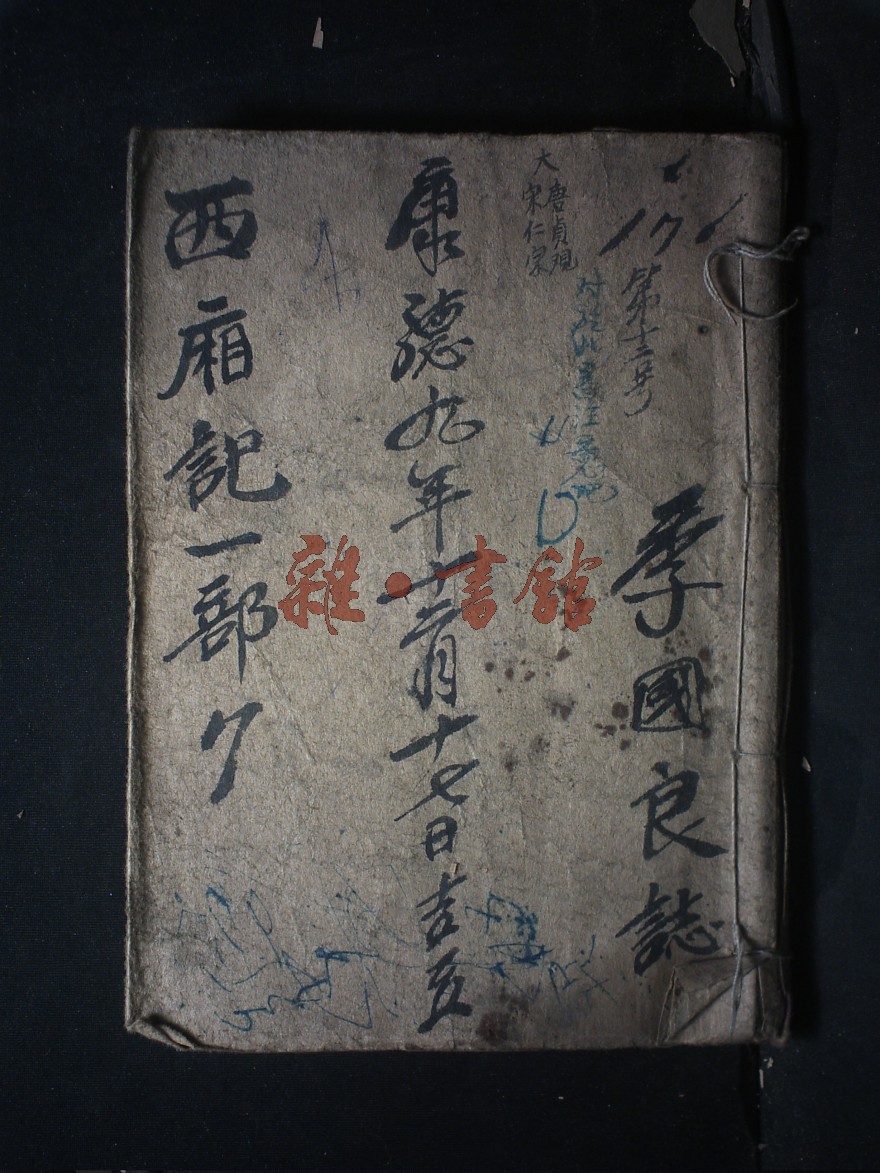 第十二号
季國良誌
大唐貞观
宋仁宗
康德九年十二月十七日吉立
西廂記一部
雜·書館